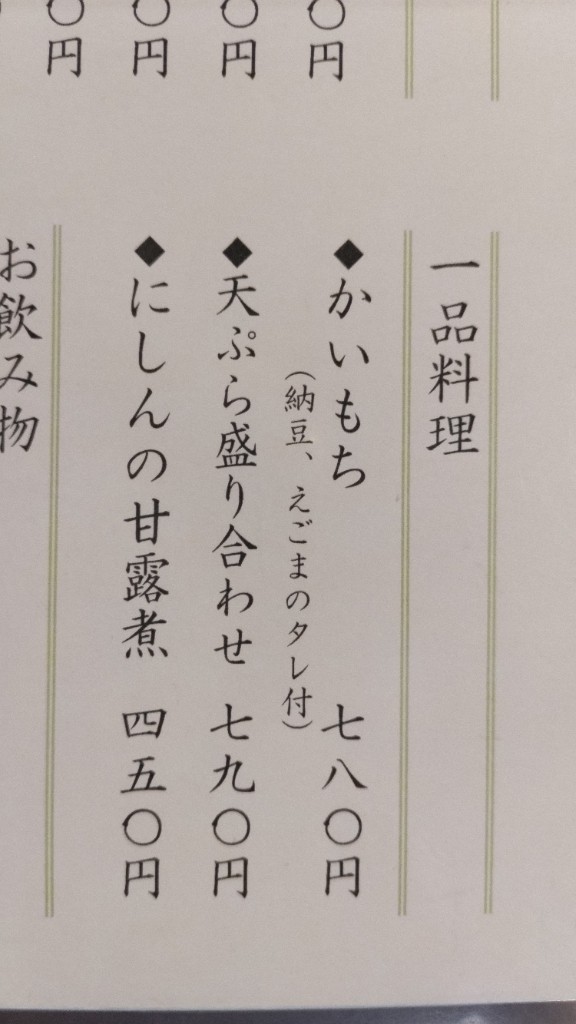 〇円
〇円
〇円
〇円
一品料理
◆かいもち 七八〇円
（納豆、えごまのタレ付）
◆天ぷら盛り合わせ 七九〇円
◆にしんの甘露煮 四五〇円
お飲み物